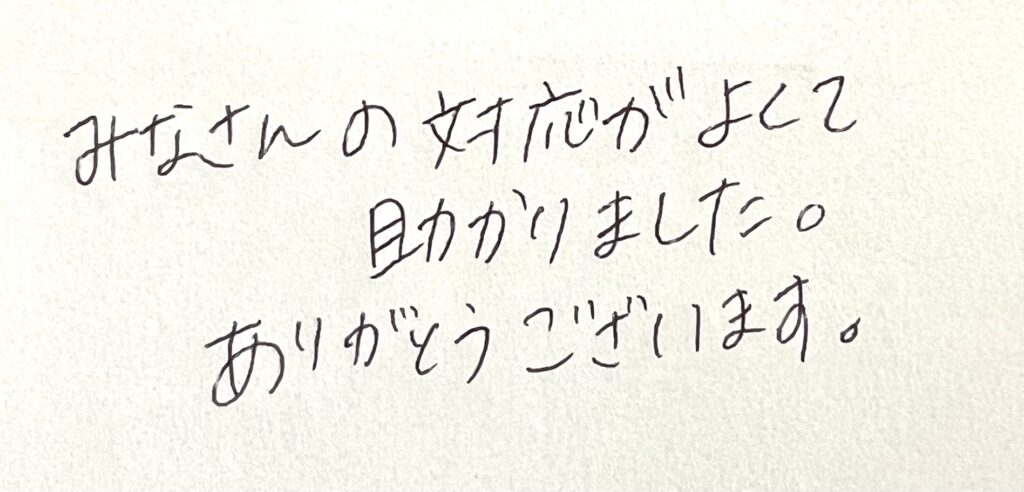 みなさんの対応がよくて
助かりました。
ありがとうございます。